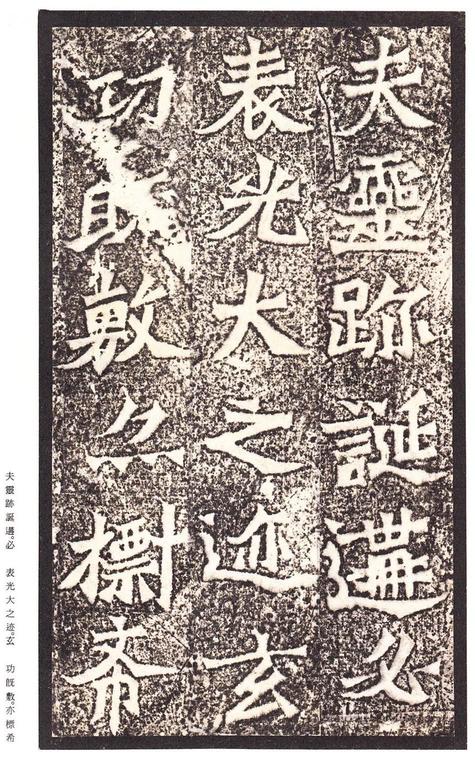 夫靈跡誕遘必
表光大之迹玄
功既敷亦標希
夫靈跡誕遘。必　表光大之迹。玄　功既敷。亦標希